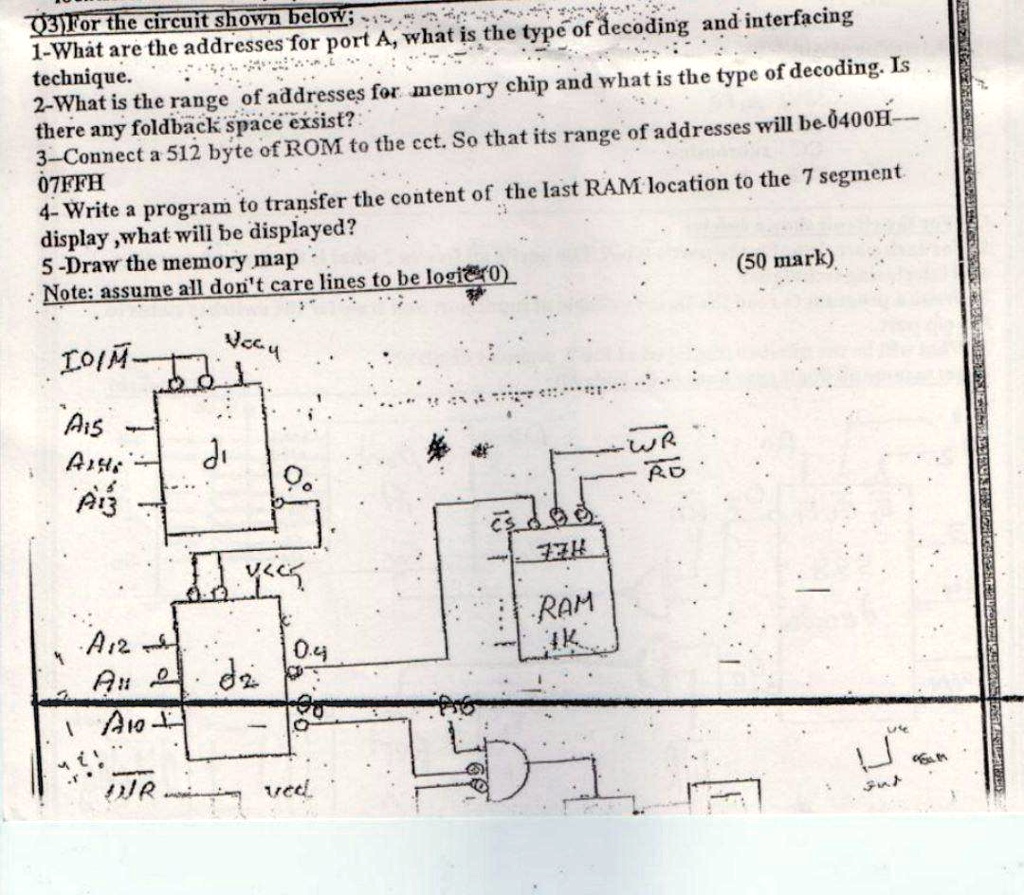 Q3)For the circuit shown below;
1-What are the addresses for port A, what is the type of decoding and interfacing
technique.
2-What is the range of addresses for memory chip and what is the type of decoding. Is
there any foldback space exsist?
3--Connect a 512 byte of ROM to the cct. So that its range of addresses will be 0400H---
07FFH
4- Write a program to transfer the content of the last RAM location to the 7 segment
display ,what will be displayed?
5 -Draw the memory map
(50 mark)
Note: assume all don't care lines to be logic (0)
IO/M̅
Vcc
A15
A14
A13
d1
O0
W̅R̅
R̅D̅
C̅S̅
77H
RAM
1K
Vcc
A12
A11
A10
d2
O4
O0
W̅R̅
vcc